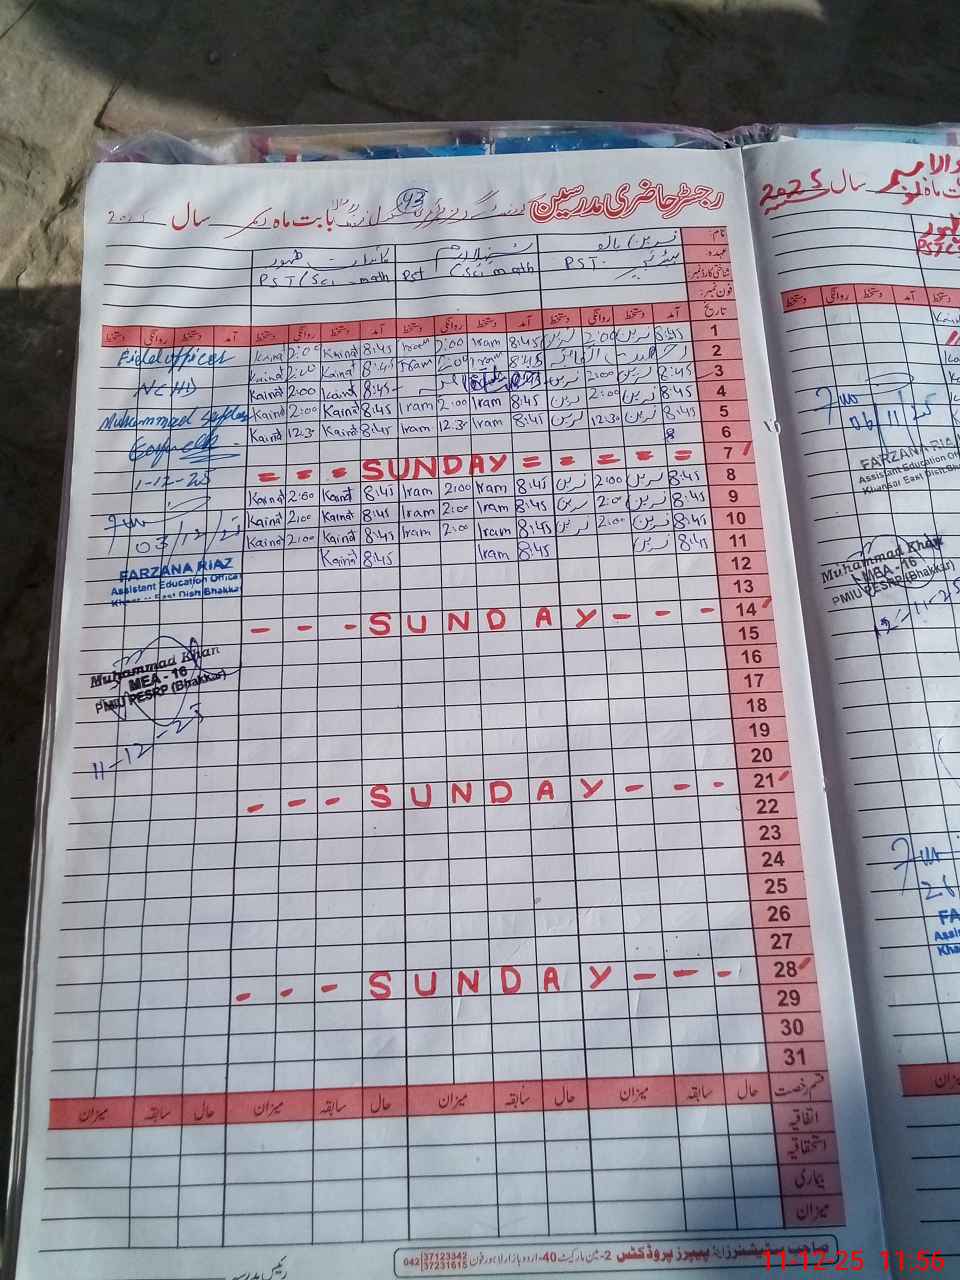 رجسٹر حاضری مدرسین
43
بابت ماہ
سال
نام:
عہدہ:
شناختی کارڈ نمبر:
فون نمبر:
PST.
Pst / Sci math
PST/Sci-math
تاریخ آمد دستخط روانگی دستخط آمد دستخط روانگی دستخط آمد دستخط روانگی دستخط آمد دستخط روانگی دستخط
1 8:45 نسرین 2:00 نسرین 8:45 Iram 2:00 Iram 8:45 Kainat 2:00 Kainat
2 8:45 Iram 2:00 Iram 8:45 Kainat 2:00 Kainat
3 8:45 نسرین 2:00 نسرین 8:45 Kainat 2:00 Kainat
4 8:45 نسرین 2:00 نسرین 8:45 Iram 2:00 Iram 8:45 Kainat 2:00 Kainat
5 8:45 نسرین 12:30 نسرین 8:45 Iram 12:30 Iram 8:45 Kainat 12:30 Kainat
6 8
7 = = = SUNDAY = = = = =
8 8:45 نسرین 2:00 نسرین 8:45 Iram 2:00 Iram 8:45 Kainat 2:00 Kainat
9 8:45 نسرین 2:00 نسرین 8:45 Iram 2:00 Iram 8:45 Kainat 2:00 Kainat
10 8:45 نسرین 2:00 نسرین 8:45 Iram 2:00 Iram 8:45 Kainat 2:00 Kainat
11 8:45 نسرین 8:45 Iram 8:45 Kainat
12
13
14 - - - SUNDAY - - -
15
16
17
18
19
20
21 - - - SUNDAY - - -
22
23
24
25
26
27
28 - - - SUNDAY - - -
29
30
31
Field officer
NCHD
Muhammad
1-12-25
03/12/25
FARZANA RIAZ
Assistant Education Officer
East Distt Bhakkar
Muhammad Khan
MEA - 16
PMIU PESRP (Bhakkar)
11-12-25
قسم رخصت حال سابقہ میزان حال سابقہ میزان حال سابقہ میزان حال سابقہ میزان
اتفاقیہ
استحقاقیہ
بیماری
میزان
صاحب سٹیشنرز اینڈ پیپرز پروڈکٹس 2-مین مارکیٹ 40-اردو بازار لاہور فون 042 37123342 37231615
2025 سال
PST
آمد روانگی دستخط
06/11/25
FARZANA RIA
Assistant Education Offi
Khansar East Distt.Bhak
Muhammad Khan
MEA - 16
PMIU PESRP (Bhakkar)
12-11-25
26
FA
Assis
Khan
11-12-25 11:56